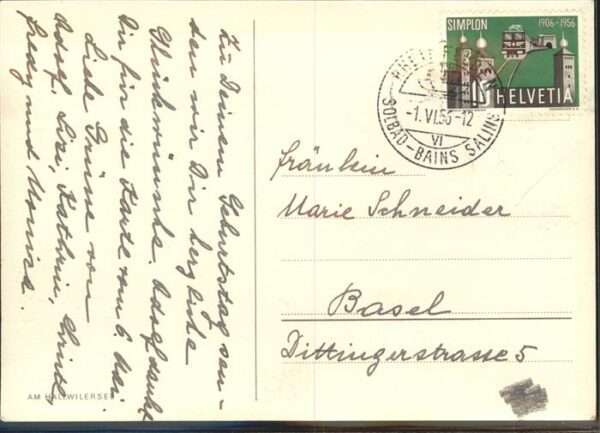 Zu Deinem Geburtstag sen-
den wir Dir herzliche
Glückwünsche. Adolf dankt
Dir für die Karte vom 6. Mai.
Liebe Grüsse von
Adolf, Lisi, Kathrin,
Fredy und Monica.
AM HALLWILERSEE
SIMPLON 1906-1956
10 HELVETIA
RHEINFELDEN
-1.VI.56-12
VI
SOLBAD-BAINS SALINS
Fräulein
Marie Schneider
Basel
Dittingerstrasse 5